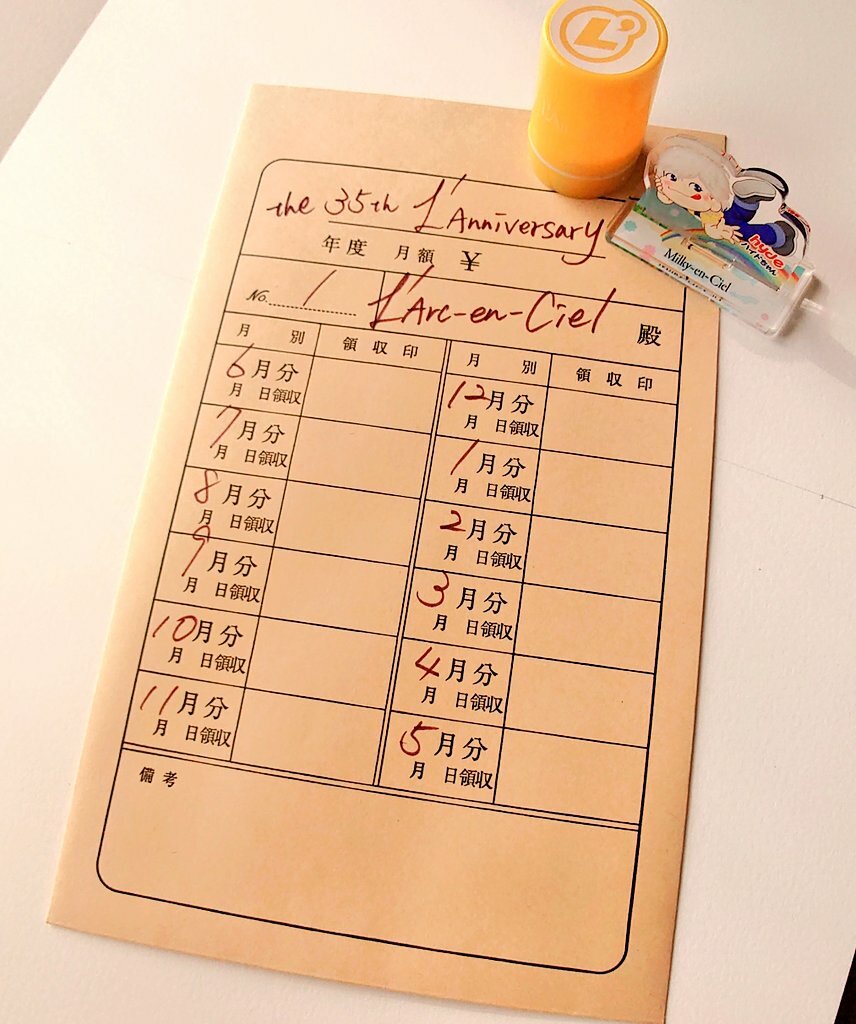 the 35th L'Anniversary
年度 月額 ¥
No. 1 L'Arc-en-Ciel 殿
月別 領収印 月別 領収印
6月分
月 日領収
7月分
月 日領収
8月分
月 日領収
9月分
月 日領収
10月分
月 日領収
11月分
月 日領収
12月分
月 日領収
1月分
月 日領収
2月分
月 日領収
3月分
月 日領収
4月分
月 日領収
5月分
月 日領収
備考
L
hyde
ハイドちゃん
Milky-en-Ciel